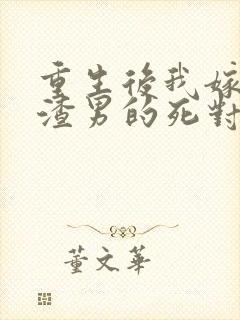 重生後我嫁
渣男的死對
董文華